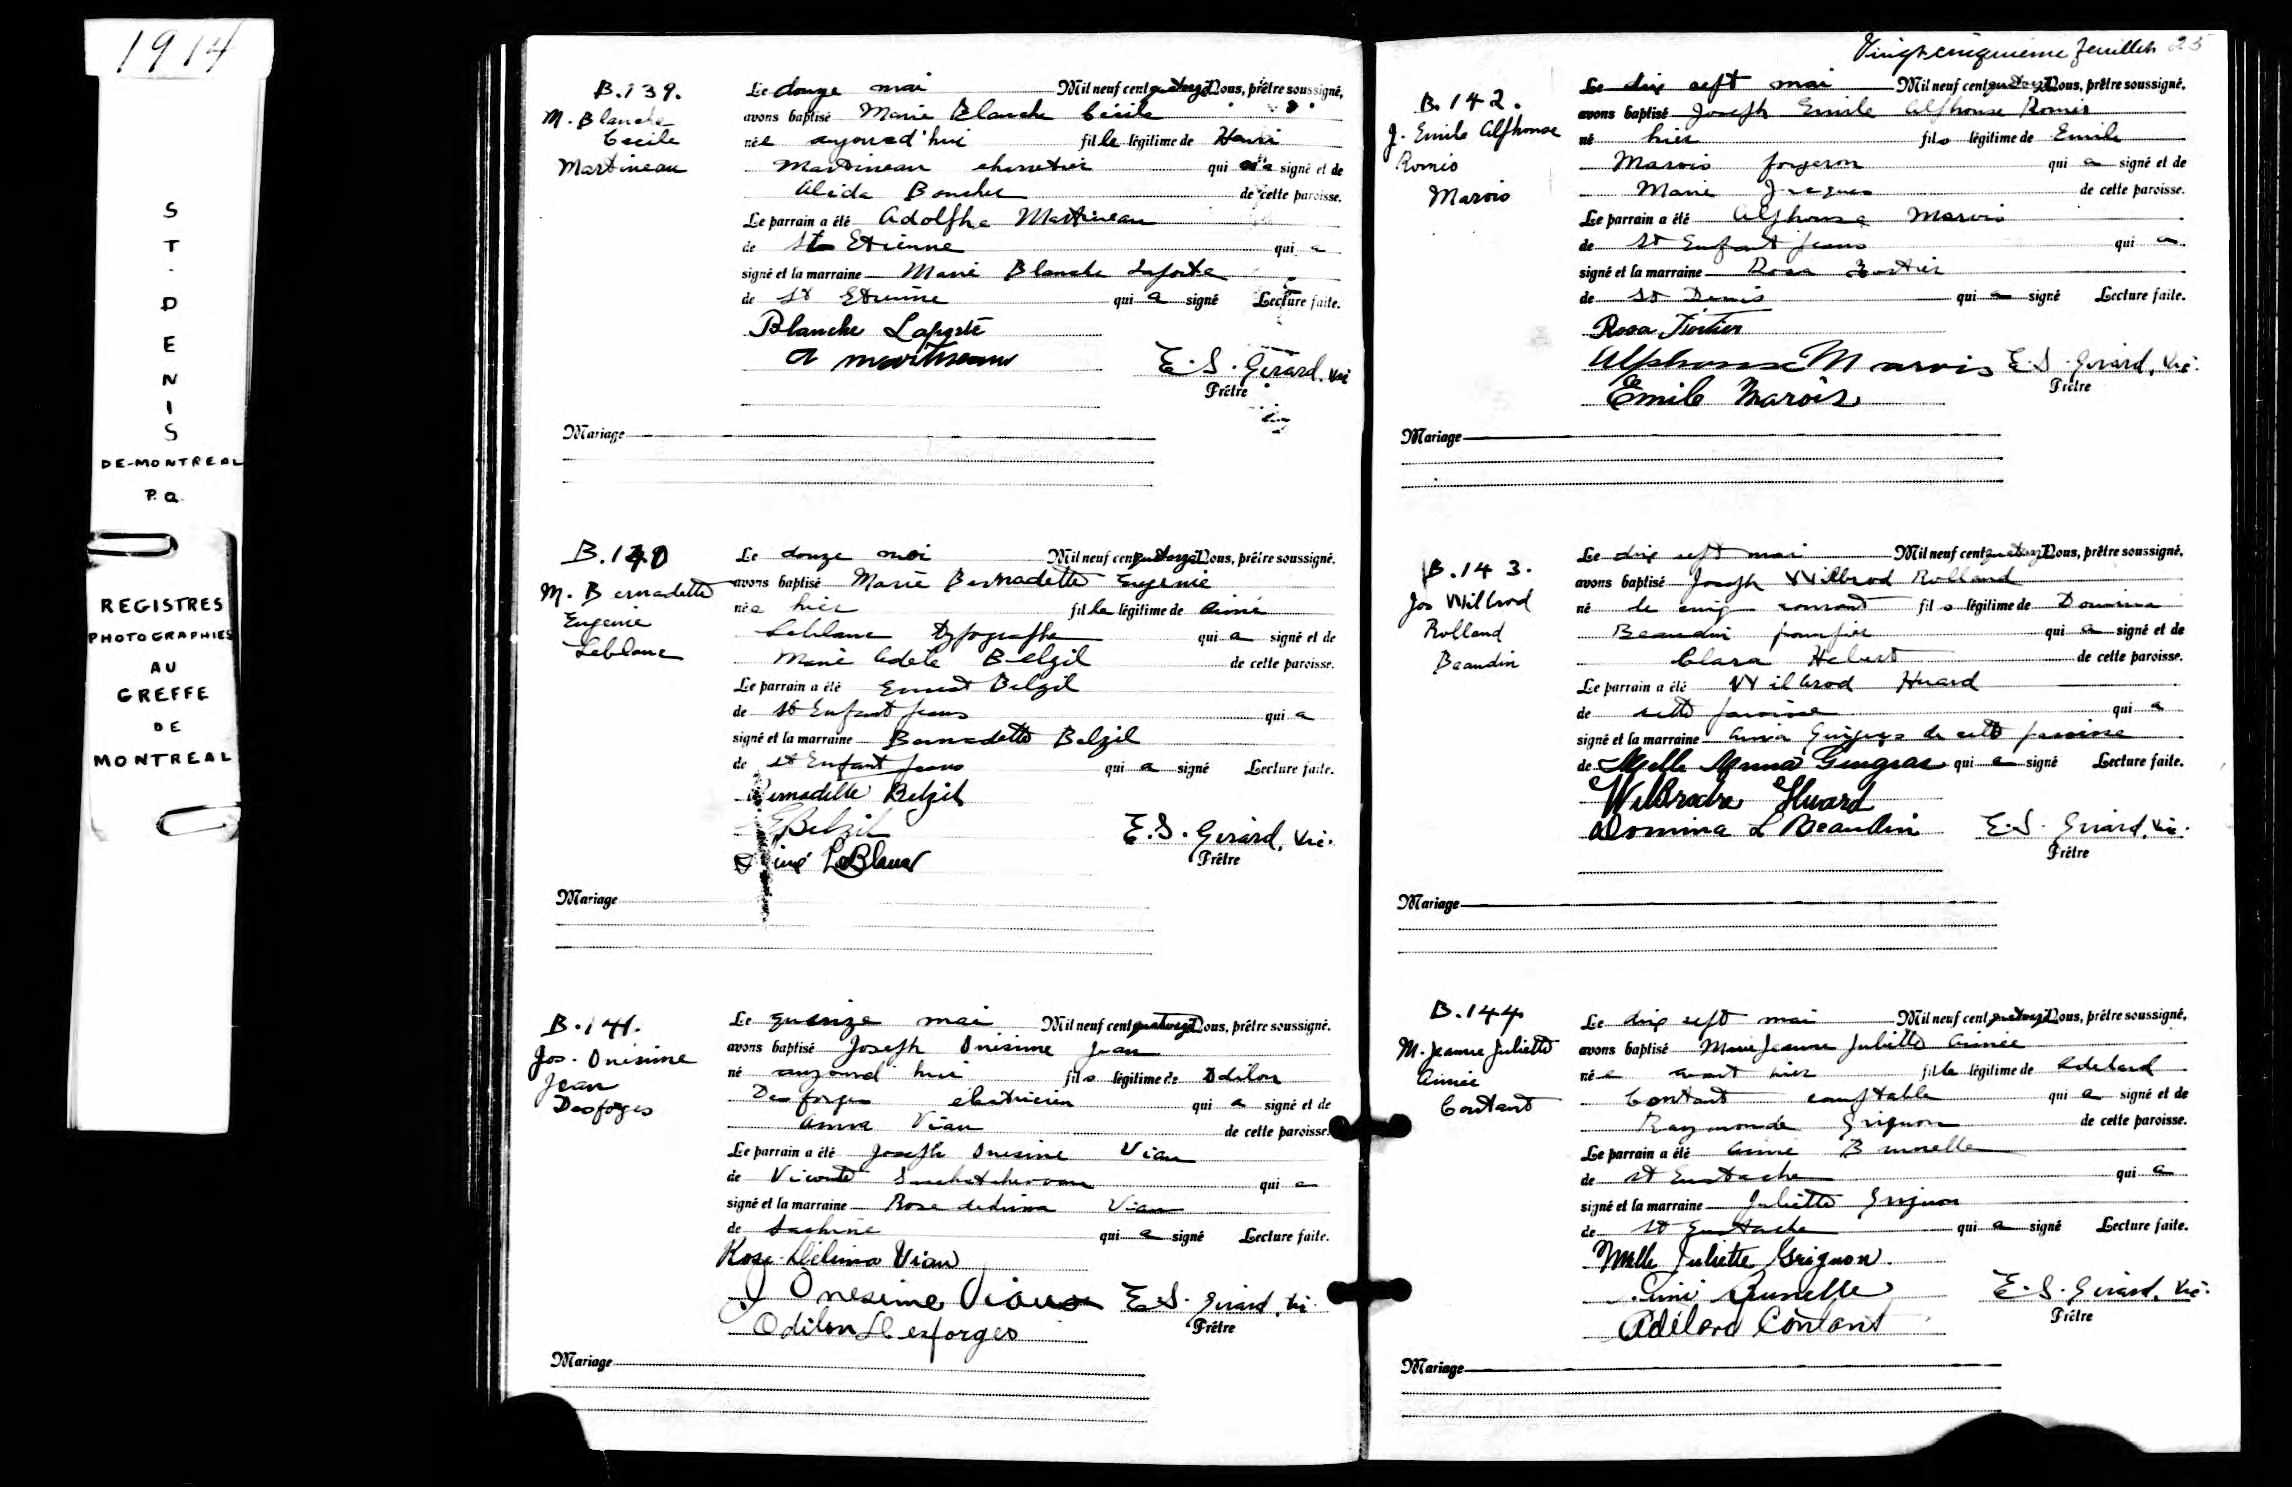 1914
ST. DENIS
DE-MONTREAL
P.Q.
REGISTRES
PHOTOGRAPHIES
AU
GREFFE
DE
MONTREAL
B.139.
M. Blanche
Cecile
Martineau
Le douze mai Mil neuf cent quatorze Nous, prêtre soussigné,
avons baptisé Marie Blanche Cécile
née aujourd'hui fille légitime de Henri
Martineau charretier qui a signé et de
Alida Boucher de cette paroisse.
Le parrain a été Adolphe Martineau
de St Etienne qui a
signé et la marraine Marie Blanche Laporte
de St Etienne qui a signé Lecture faite.
Blanche Laporte
A Martineau
E. S. Gérard, Vic.
Prêtre
Mariage
B.140
M. Bernadette
Eugenie
Leblanc
Le douze mai Mil neuf cent quatorze Nous, prêtre soussigné.
avons baptisé Marie Bernadette Eugenie
née hier fille légitime de Aimé
Leblanc typographe qui a signé et de
Marie Adele Belzil de cette paroisse.
Le parrain a été Ernest Belzil
de St Enfant Jesus qui a
signé et la marraine Bernadette Belzil
de St Enfant Jesus qui a signé Lecture faite.
Bernadette Belzil
E Belzil
Aimé LeBlanc
E. S. Gérard, Vic.
Prêtre
Mariage
B.141.
Jos. Onésime
Jean
Desforges
Le quinze mai Mil neuf cent quatorze Nous, prêtre soussigné.
avons baptisé Joseph Onésime Jean
né aujourd'hui fils légitime de Odilon
Desforges electricien qui a signé et de
Anna Viau de cette paroisse.
Le parrain a été Joseph Onésime Viau
de Saskatchewan qui a
signé et la marraine Rose delima Viau
de Lachine qui a signé Lecture faite.
Rose-Délima Viau
J Onesime Viau
Odilon Desforges
E. S. Gérard, Vic.
Prêtre
Mariage
Vingt cinquième feuillet 25
B.142.
J. Emile Alphonse
Roméo
Marois
Le dix sept mai Mil neuf cent quatorze Nous, prêtre soussigné,
avons baptisé Joseph Emile Alphonse Roméo
né hier fils légitime de Emile
Marois forgeron qui a signé et de
Marie Jacques de cette paroisse.
Le parrain a été Alphonse Marois
de St Enfant Jesus qui a
signé et la marraine Rosa Fortier
de St Denis qui a signé Lecture faite.
Rosa Fortier
Alphonse Marois
Emile Marois
E. S. Gérard, Vic.
Prêtre
Mariage
B.143.
Jos Wilbrod
Rolland
Beaudin
Le dix sept mai Mil neuf cent quatorze Nous, prêtre soussigné,
avons baptisé Joseph Wilbrod Rolland
né le cinq courant fils légitime de Domina
Beaudin pompier qui a signé et de
Clara Hebert de cette paroisse.
Le parrain a été Wilbrod Huard
de cette paroisse qui a
signé et la marraine Anna Gingras de cette paroisse
de Melle Anna Gingras qui a signé Lecture faite.
Wilbrodre Huard
Domina L Beaudin
E. S. Gérard, Vic.
Prêtre
Mariage
B.144
M. Jeanne Juliette
Aimée
Contant
Le dix sept mai Mil neuf cent quatorze Nous, prêtre soussigné,
avons baptisé Marie Jeanne Juliette Aimée
née avant hier fille légitime de Adelard
Contant constable qui a signé et de
Raymonde Grignon de cette paroisse.
Le parrain a été Aimé Brunelle
de St Eustache qui a
signé et la marraine Juliette Grignon
de St Eustache qui a signé Lecture faite.
Melle Juliette Grignon.
Aimé Brunelle
Adélard Contant
E. S. Gérard, Vic.
Prêtre
Mariage